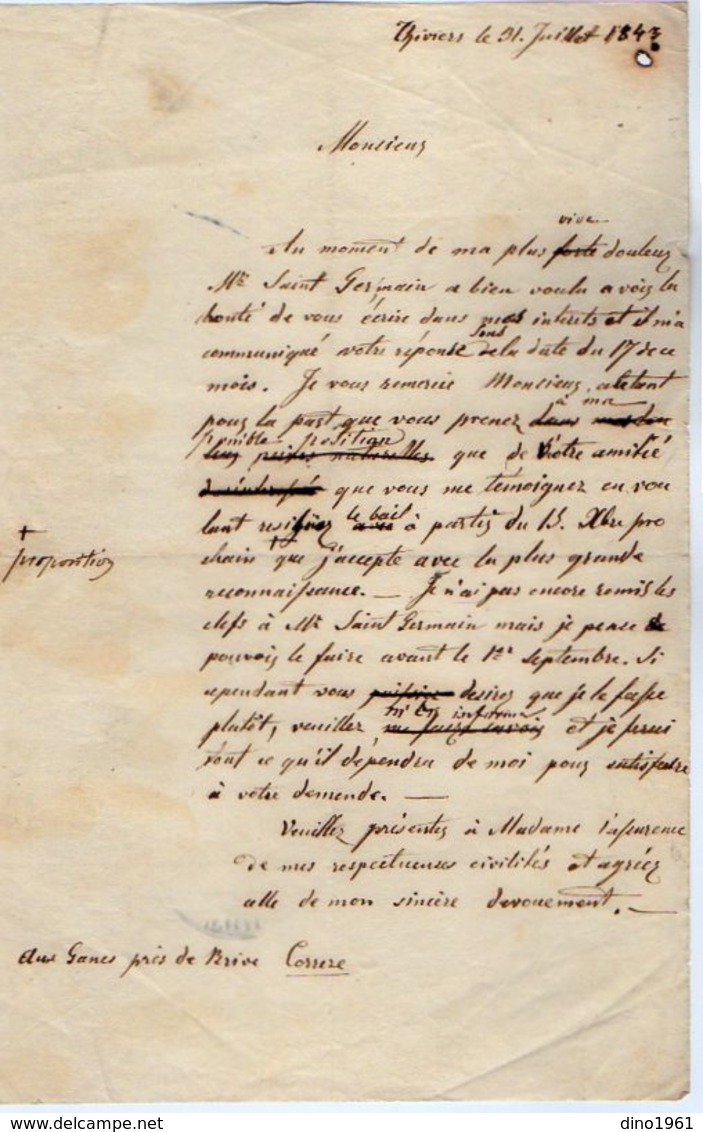 Thiviers le 31. Juillet 1843
Monsieur
vive
Au moment de ma plus forte douleur
Mr. Saint Germain a bien voulu avoir la
bonté de vous écrire dans mes interets et il m'a
sous
communiqué votre réponse de la date du 17 de ce
mois. Je vous remercie Monsieur, autant
à ma
pour la part que vous prenez dans
penible position
peines naturelles que de votre amitié
que vous me témoignez en vou
le bail
lant resilier avec à partir du 15. Xbre pro
chain + que j'accepte avec la plus grande
+
proposition
reconnaissance. — Je n'ai pas encore remis les
clefs à Mr. Saint Germain mais je pense de
pouvoir le faire avant le 1er septembre. Si
cependant vous puissiez desirez que je le fasse
m'en informer
platôt, veuillez me faire savoir et je ferai
tout ce qu'il dépendra de moi pour satisfaire
à votre demende. —
Veuillez présenter à Madame l'assurence
de mes respectueuses civilités et agréez
celle de mon sincère devouement. —
Aux Ganes près de Brive Correze
dino1961